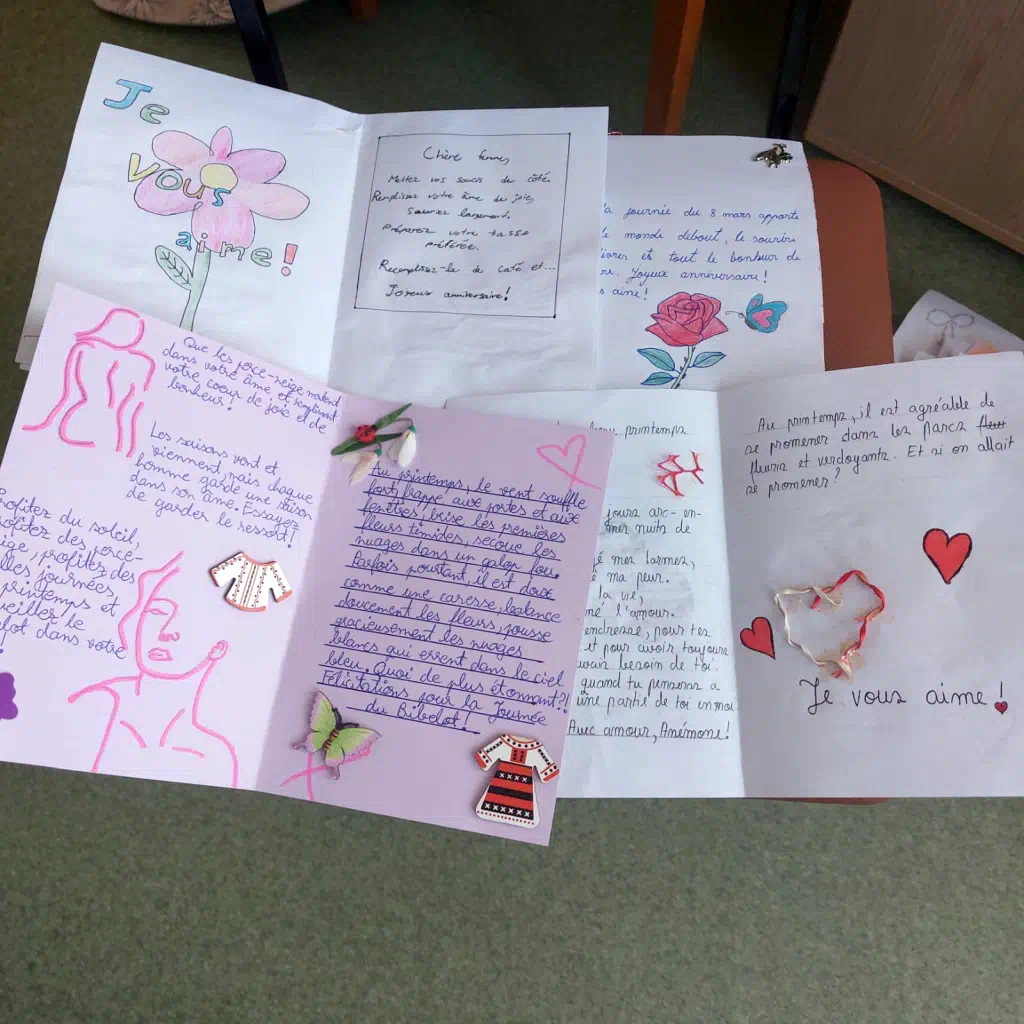 Je
vous
aime!
Chère femme,
Mettez vos soucis de côté.
Remplissez votre âme de joie,
Souriez largement.
Préparez votre tasse
préférée.
Remplissez-le de café et...
Joyeux anniversaire!
a journée du 8 mars apporte
monde debout, le sourire
lèvres et tout le bonheur de
Joyeux anniversaire!
aime!
Que les perce-neige mettent
dans votre âme et remplissent
votre coeur de joie et de
bonheur!
Les saisons vont et
viennent, mais chaque
homme garde une saison
dans son âme. Essayez
de garder le ressort!
Profitez du soleil,
profitez des perce-
neige, profitez des
belles journées
printemps et
le
dans votre
Au printemps, le vent souffle
fort, frappe aux portes et aux
fenêtres, brise les premières
fleurs timides, secoue les
nuages dans un galop fou.
Parfois pourtant, il est doux
comme une caresse, balance
doucement les fleurs, pousse
gracieusement les nuages
blancs qui errent dans le ciel
bleu. Quoi de plus étonnant?!
Félicitations pour la Journée
du Bibelot!
printemps
jours arc-en-
nuits de
mes larmes,
ma peur.
la vie,
l'amour.
tendresse, pour tes
et pour avoir toujours
besoin de toi.
quand tu penseras a
une partie de toi en moi
Avec amour, Anémone!
Au printemps, il est agréable de
se promener dans les parcs fleuri
fleuris et verdoyants. Et si on allait
se promener?
Je vous aime!